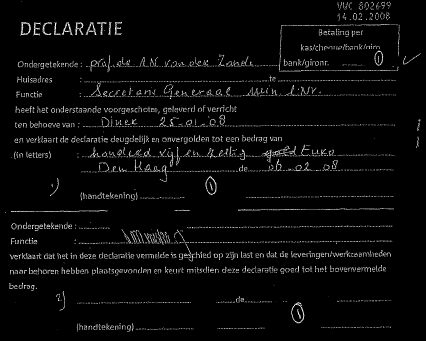 VWC 802699
14.02.2008
DECLARATIE
Betaling per
kas/cheque/bank/giro
bank/gironr. 1
Ondergetekende : prof. dr. A.N. van der Zande
Huisadres : te
Functie : Secretaris Generaal Min. LNV.
heeft het onderstaande voorgeschoten, geleverd of verricht
ten behoeve van : Diner 25.01.08
en verklaart de declaratie deugdelijk en onvergolden tot een bedrag van
(in letters) : honderd vijf en zestig Euro
Den Haag de 06.02.08
1)
(handtekening) 1
Ondergetekende :
Functie :
verklaart dat het in deze declaratie vermelde is geschied op zijn last en dat de leveringen/werkzaamheden
naar behoren hebben plaatsgevonden en keurt mitsdien deze declaratie goed tot het bovenvermelde
bedrag.
2) de
(handtekening) 1